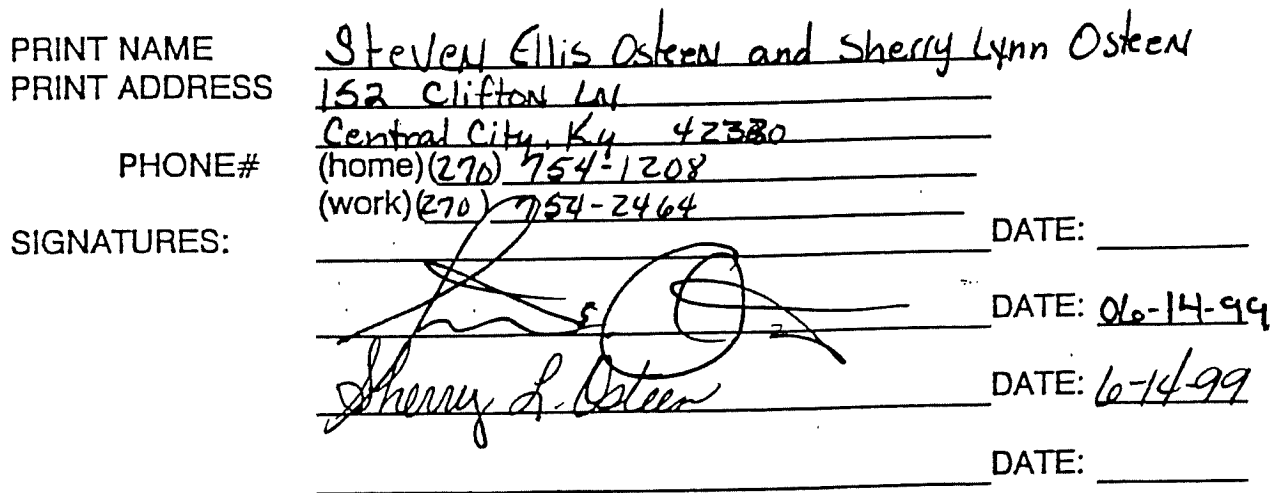 PRINT NAME Steven Ellis Osteen and Sherry Lynn Osteen
PRINT ADDRESS 152 Clifton LN
Central City, Ky 42330
PHONE# (home)(270) 754-1208
(work)(270) 754-2464
SIGNATURES: DATE:
DATE: 06-14-99
Sherry L. Osteen DATE: 6-14-99
DATE: